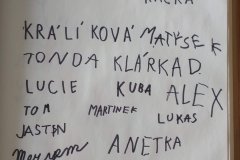 KRÁLÍKOVÁ MATYSEK
TONDA KLÁRKA D.
LUCIE KUBA ALEX
TOM MARTINEK LUKAS
JASTIN
ANETKA